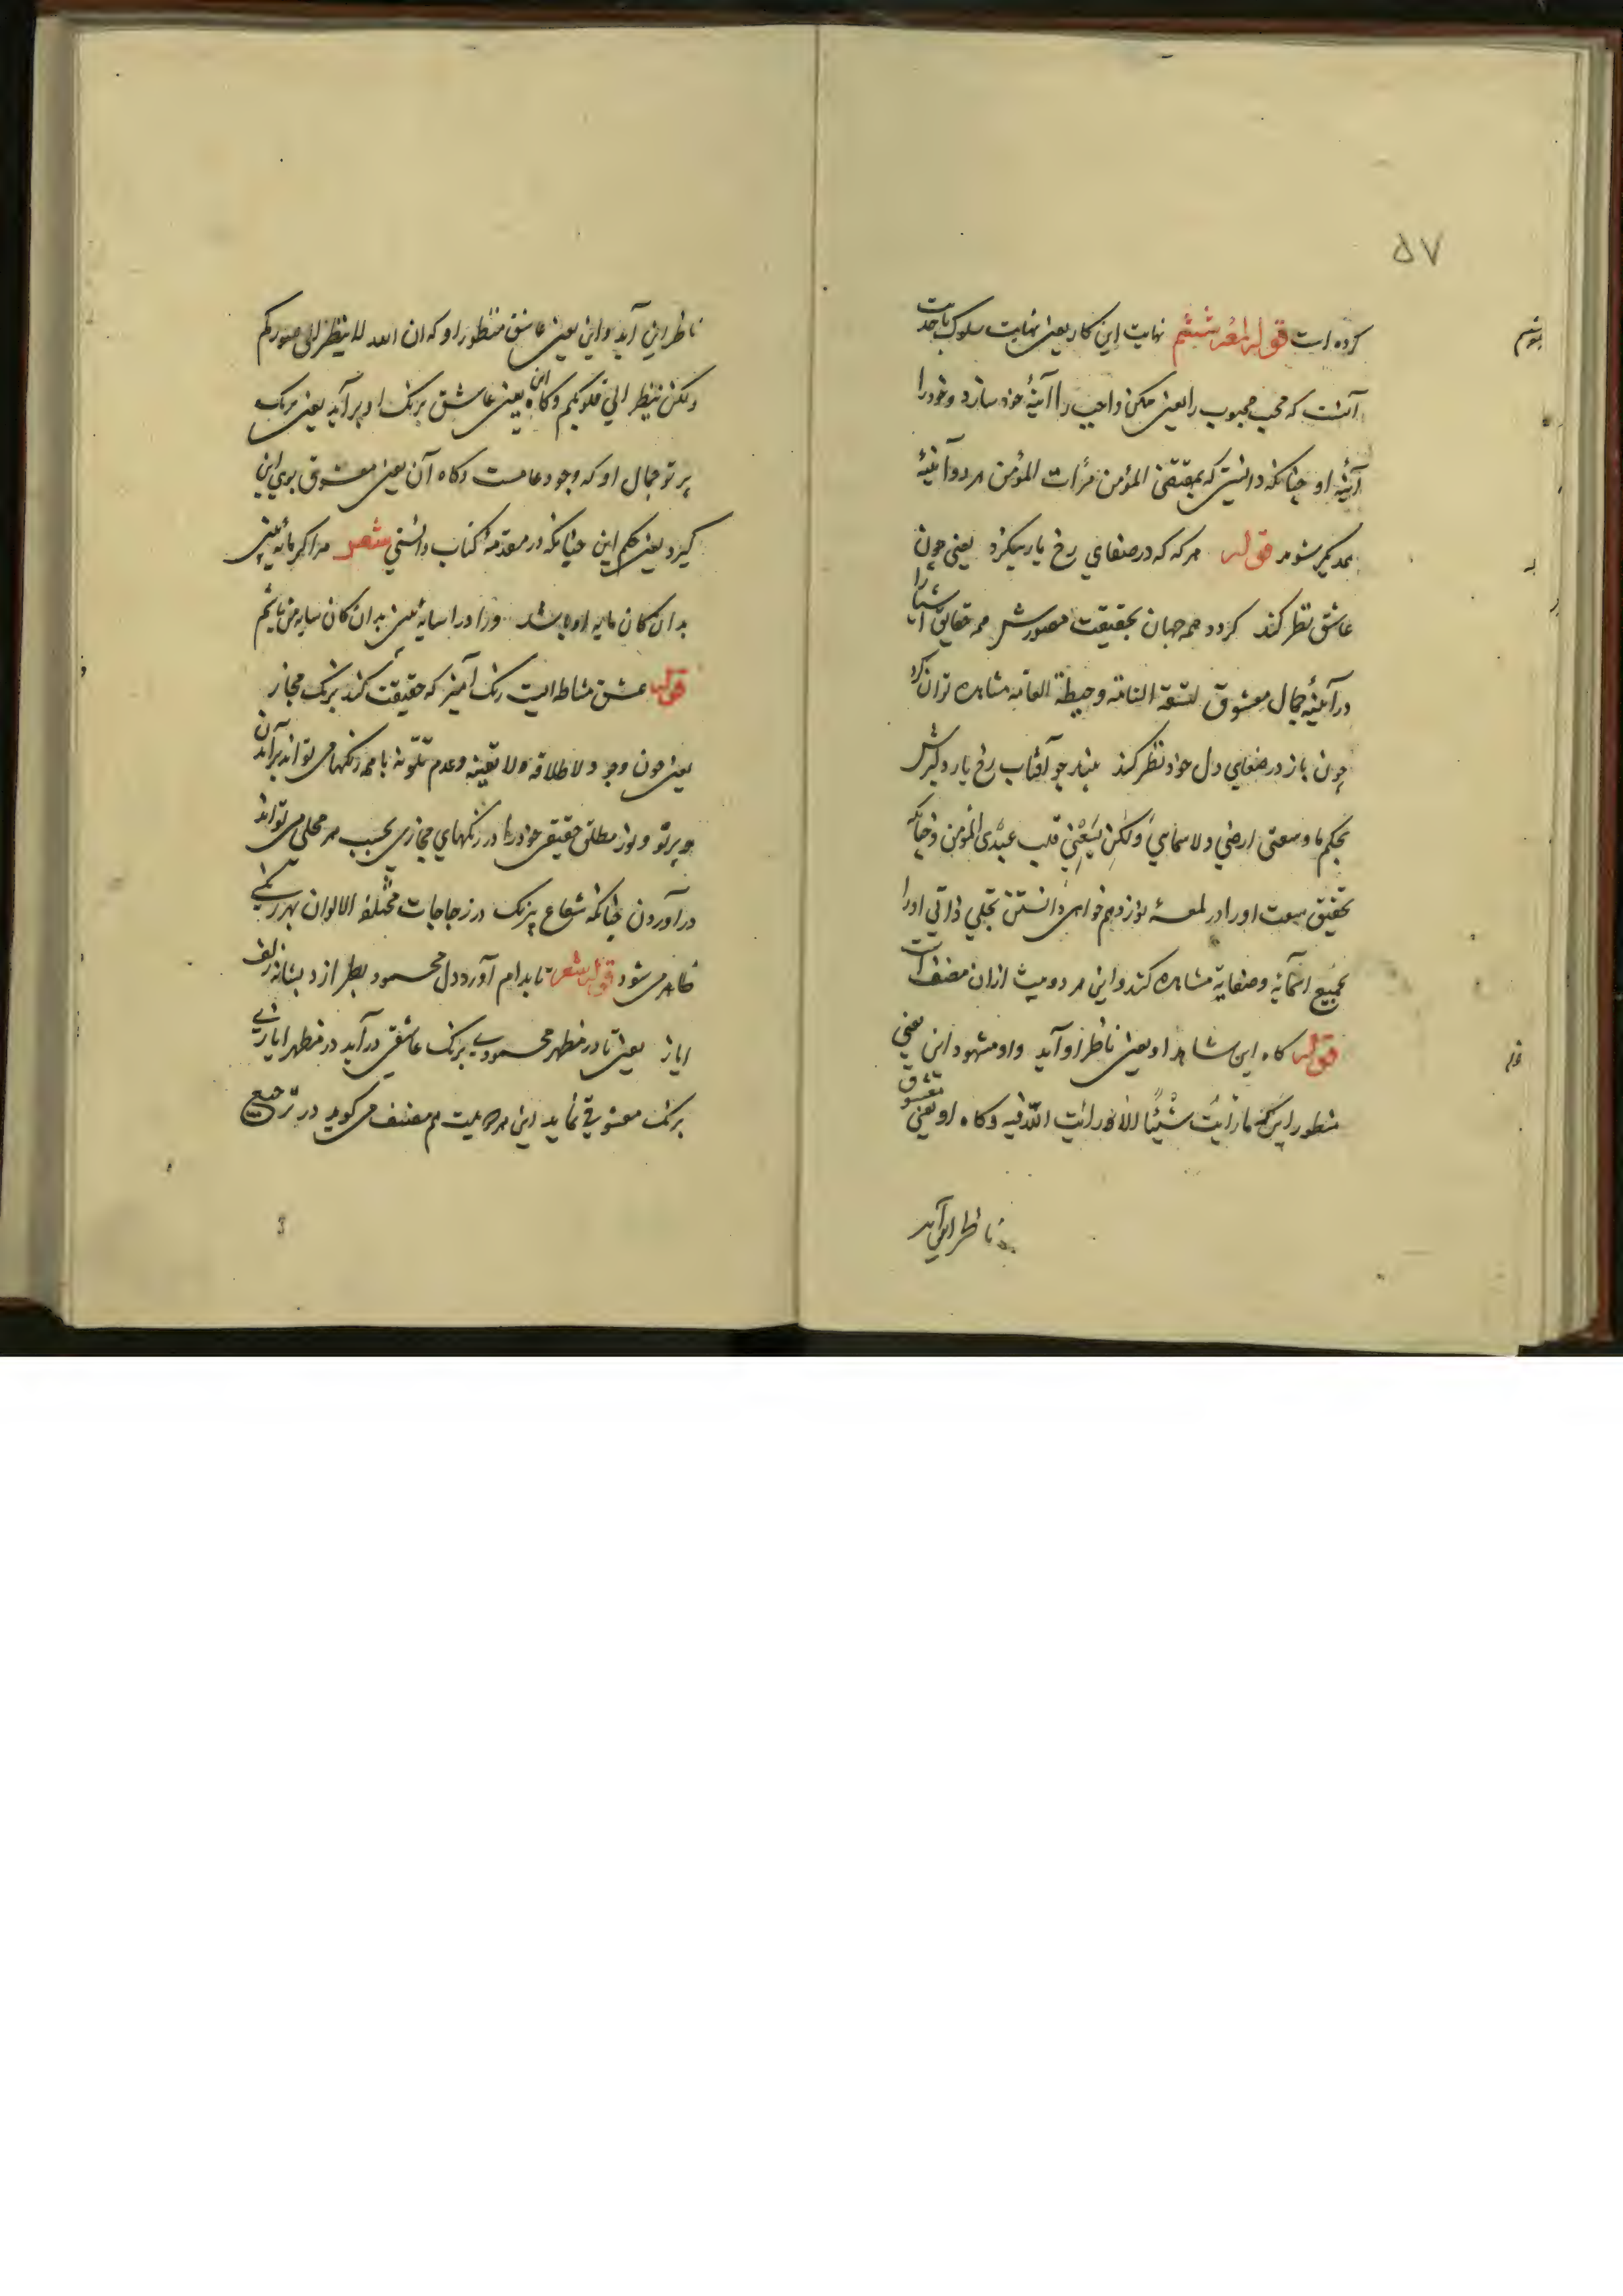 ۵۷
کرده است قوله لمعه ششم نهایت این کار یعنی نهایت سلوک با جذبت
آنست که محب محبوب را یعنی ممکن واجب را آئینهٔ خود سازد و خود را
آئینهٔ او چنانکه دانستی که بمقتضی المؤمن مرآت المؤمن هر دو آئینهٔ
یکدیگر شوند قوله هر که که در صفای رخ یار نکرد یعنی چون
عاشق نظر کند کردد همه جهان بحقیقت مصورش همه حقایق اشیا را
در آئینه جمال معشوق لسعته التامة وحیطة العامه مشاهده تواند کرد
چون باز در فضای دل خود نظر کند بیند چو آفتاب رخ یار دلبرش
بحکم ما وسعنی ارضی ولا سمایی ولکن یسعنی قلب عبدی المؤمن وچنانکه
تحقیق سعت او را در لمعهٔ نوزدهم خواهی دانستن تجلی ذاتی او را
بجمیع اسمائه وصفاته مشاهده کند واین هر دو بیت ازان مصنف است
قوله کاه این شاهد او یعنی ناظر او آید واو مشهود این یعنی
منظور این که ما رأیت شیئا الا ورأیت الله فیه وکاه او یعنی معشوق
ناظر این آید
ناظر این آید واین یعنی عاشق منظور او که ان الله لا ینظر الی صورکم
ولکن ینظر الی قلوبکم وکاه این یعنی عاشق برنک او بر آید یعنی برنک
پرتو جمال او که وجود عامست وکاه آن یعنی معشوق بوی این
کیرد یعنی حکم این چنانکه در مقدمهٔ کتاب دانستی شعر مرا کر مایه بینی
بدان کان مایه او باشد ورا در سایه بینی بدان کان سایه من باشم
قوله عشق مشاطه ایست رنک آمیز که حقیقت کند برنک مجاز
یعنی چون وجود لاطلاقه ولا تعینه وعدم تلونه با همه رنکها می تواند بر آمدن
وپرتو ونور مطلق حقیقی خود را در رنکهای مجازی بحسب هر محلی می تواند
در آوردن چنانکه شعاع بیرنک در زجاجات مختلفة الالوان بهر رنکی
ظاهر می شود قوله شعر تا بدام آورد دل محمود بطرازد بشانه زلف
ایاز یعنی تا در مظهر محمودی برنک عاشقی در آید در مظهر ایازی
برنک معشوقی نماید این هر دو بیت هم مصنف می کوید در ترجیع